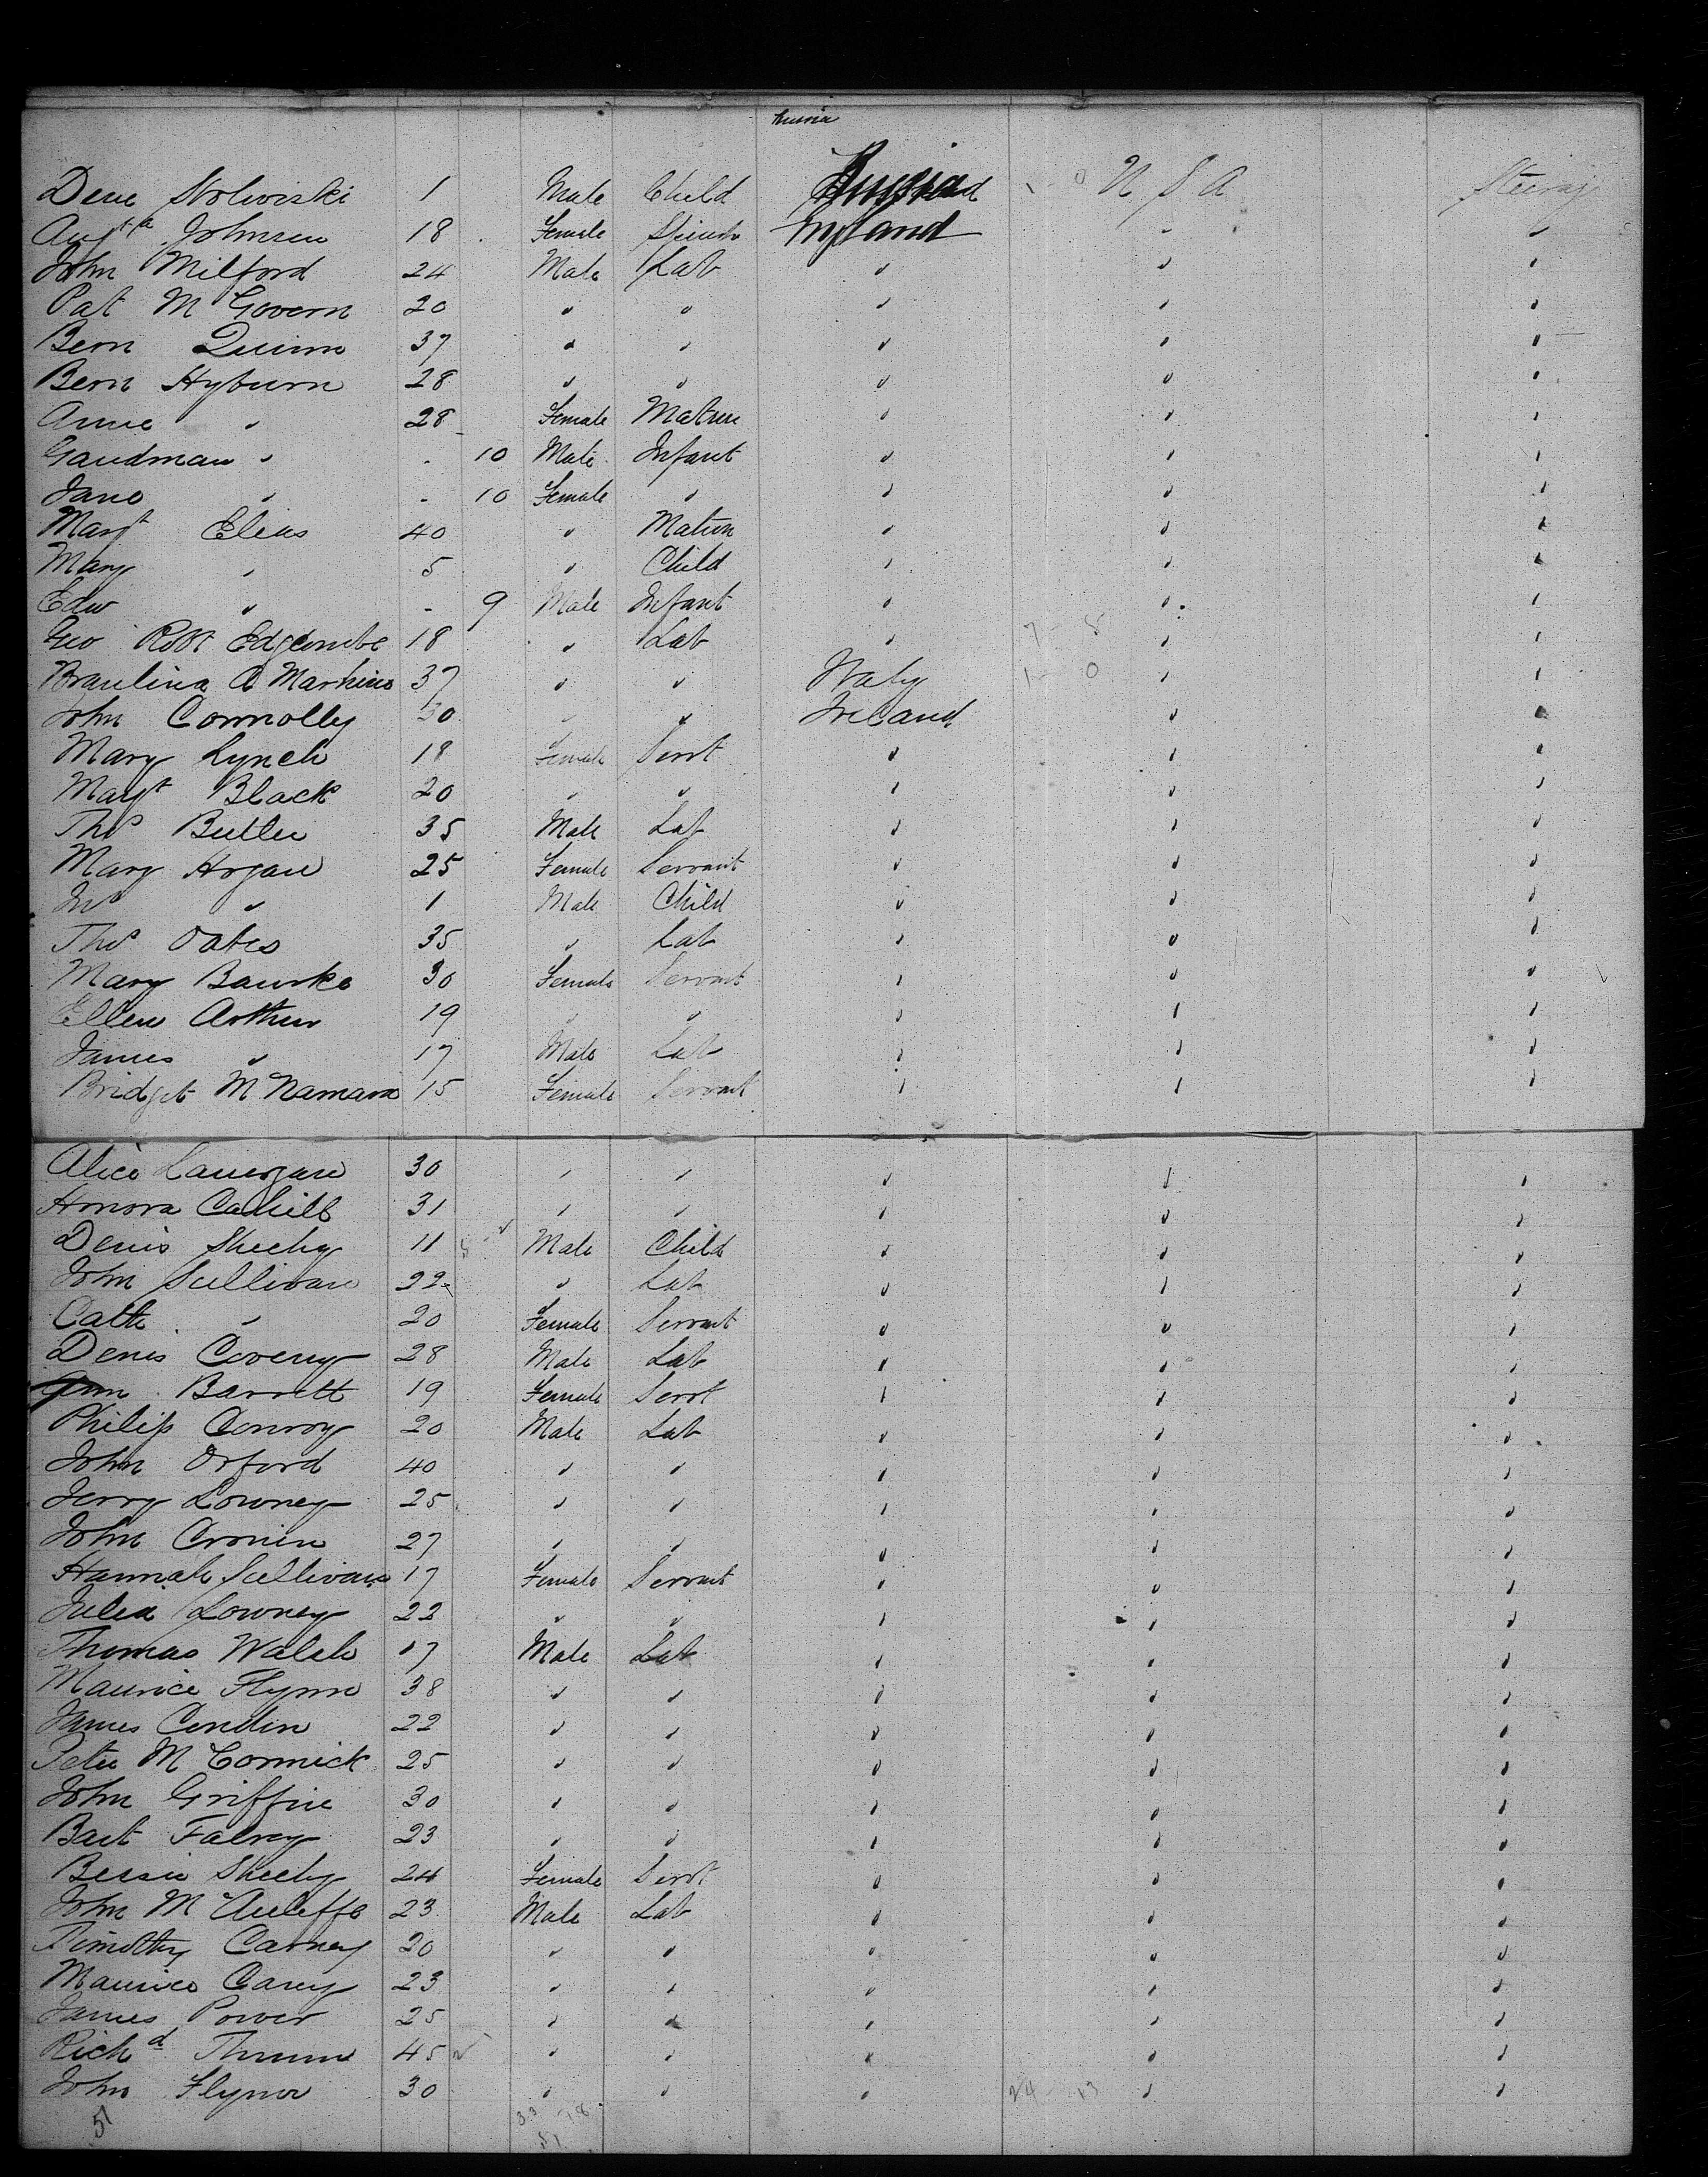 Russia
Dene Stolwiski 1 Male Child Russia U S A Steerag
Aug'ta Johnson 18 Female Spinstr England " "
John Milford 24 Male Lab " " "
Pat McGovern 20 " " " " "
Bern Quinn 37 " " " " "
Bern Hyburn 28 " " " " "
Anne " 28 Female Matron " " "
Gaudman " - 10 Male Infant " " "
Jane " - 10 Female " " " "
Margt Elias 40 " Matron " " "
Mary " 5 " Child " " "
Edw " - 9 Male Infant " " "
Geo Robt Edgcombe 18 " Lab " 7 - 5 " "
Braulina A Markins 37 " " Italy 1 - 0 " "
John Connolly 30 " " Ireland " "
Mary Lynch 18 Female Servt " " "
Margt Black 20 " " " " "
Thos Butler 35 Male Lab " " "
Mary Hogan 25 Female Servant " " "
Jno " 1 Male Child " " "
Thos Oates 35 " Lab " " "
Mary Bourke 30 Female Servant " " "
Ellen Arthur 19 " " " " "
James " 17 Male Lab " " "
Bridget McNamara 15 Female Servant " " "
Alice Lanergan 30 " " " " "
Honora Cahill 31 " " " " "
Denis Sheehy 11 Male Child " " "
John Sullivan 22 " Lab " " "
Cath " 20 Female Servant " " "
Denis Coveny 28 Male Lab " " "
Ann Barrett 19 Female Servt " " "
Philip Conroy 20 Male Lab " " "
John Orford 40 " " " " "
Jerry Lowney 25 " " " " "
John Cronin 27 " " " " "
Hannah Sullivan 17 Female Servant " " "
Julia Lowney 22 " " " " "
Thomas Walsh 17 Male Lab " " "
Maurice Flynn 38 " " " " "
James Condin 22 " " " " "
Peter McCormick 25 " " " " "
John Griffin 30 " " " " "
Bart Falvey 23 " " " " "
Bessie Sheehy 24 Female Servt " " "
John McAuliffe 23 Male Lab " " "
Timothy Carney 20 " " " " "
Maurice Carey 23 " " " " "
James Power 25 " " " " "
Richd Thrum 45 " " " " "
John Flynn 30 " " " 24 - 13 " "
51 33 18
51